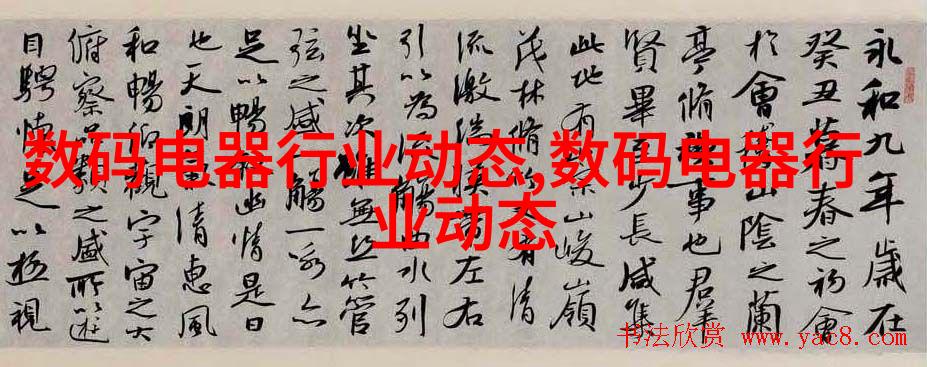 永和九年歲在
癸丑暮春之初會
於會山陰之蘭
亭脩事也羣
賢畢至少長咸集
此地有崇山峻嶺
茂林脩竹又有清
流激湍映帶左右
引以為流觴曲水列
坐其次雖無絲竹管
弦之盛一觴一詠亦
足以暢敘幽情是日
也天朗氣清惠風
和暢仰觀宇宙之大
俯察品類之盛所以遊
目騁懷足以極視
数码电器行业动态,数码电器行
业动态
书法欣赏 www.yac8.com